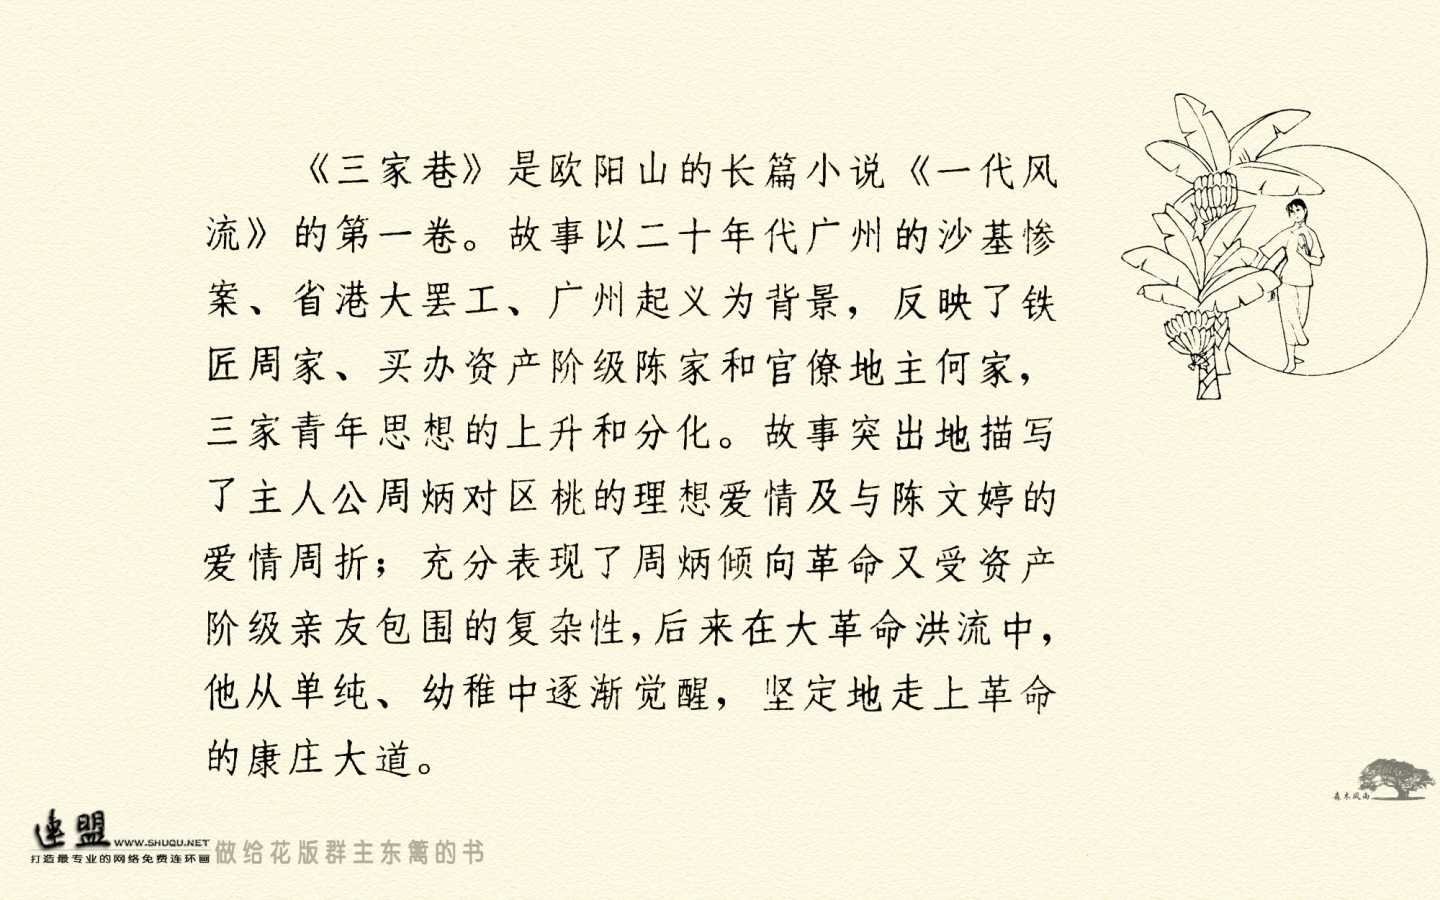 《三家巷》是欧阳山的长篇小说《一代风
流》的第一卷。故事以二十年代广州的沙基惨
案、省港大罢工、广州起义为背景，反映了铁
匠周家、买办资产阶级陈家和官僚地主何家，
三家青年思想的上升和分化。故事突出地描写
了主人公周炳对区桃的理想爱情及与陈文婷的
爱情周折；充分表现了周炳倾向革命又受资产
阶级亲友包围的复杂性，后来在大革命洪流中，
他从单纯、幼稚中逐渐觉醒，坚定地走上革命
的康庄大道。
森木风雨
連盟 WWW.SHUQU.NET
打造最专业的网络免费连环画
做给花版群主东篱的书